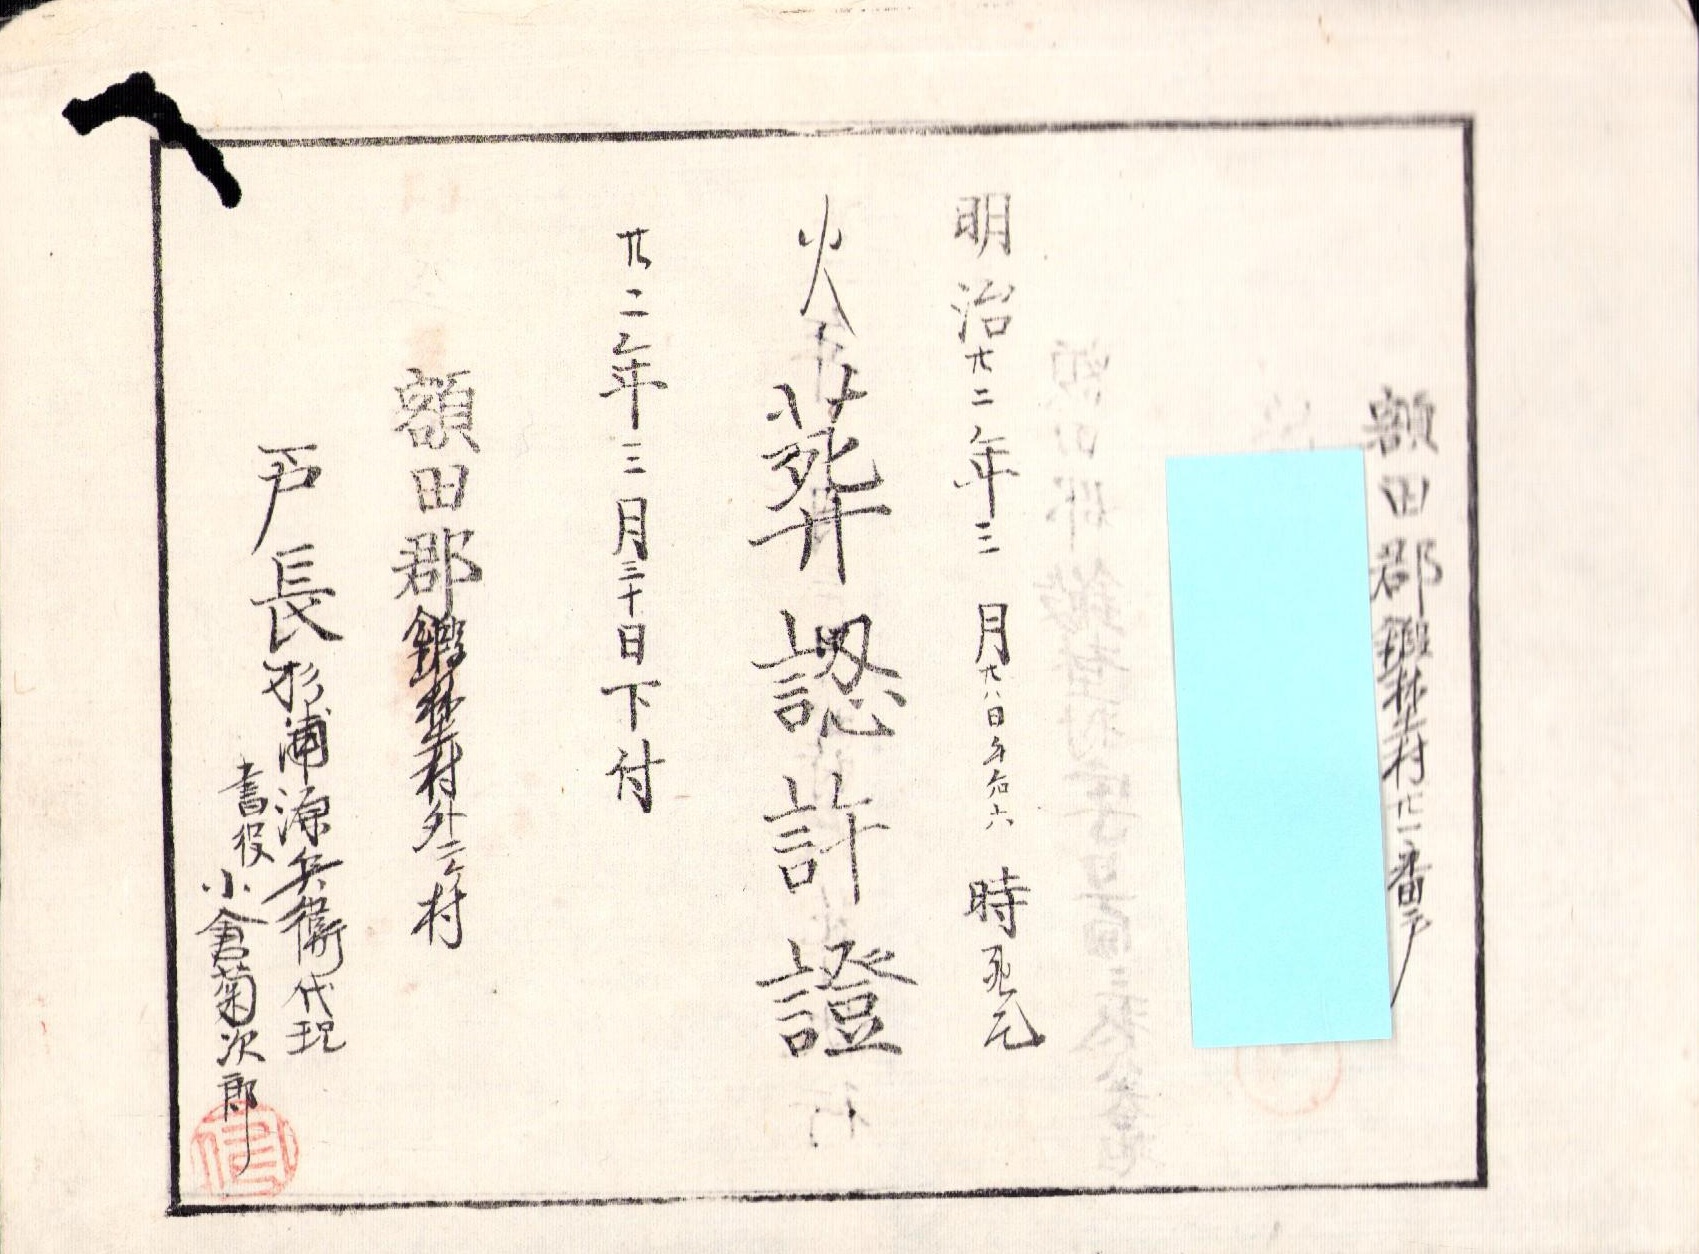 額田郡鍛埜村廿一番戸
明治廿二年三月廿八日午后六時死亡
火葬認許證
廿二年三月三十日下付
額田郡鍛埜村外二ヶ村
戸長杉浦源兵衛代理
書役小倉菊次郎